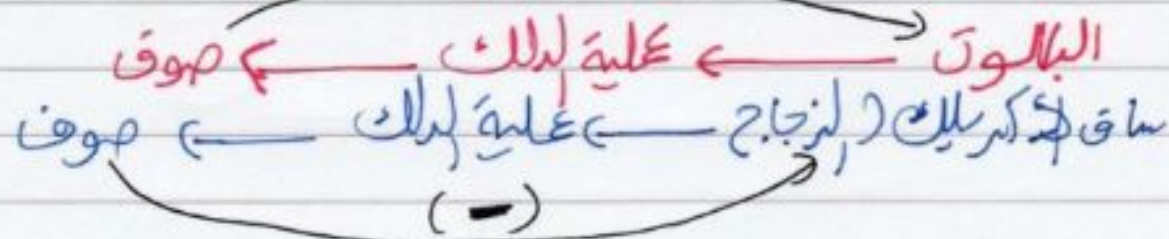 البالون ← عملية الدلك ← صوف
ساق الأكريليك (الزجاج ← عملية الدلك ← صوف
(-)